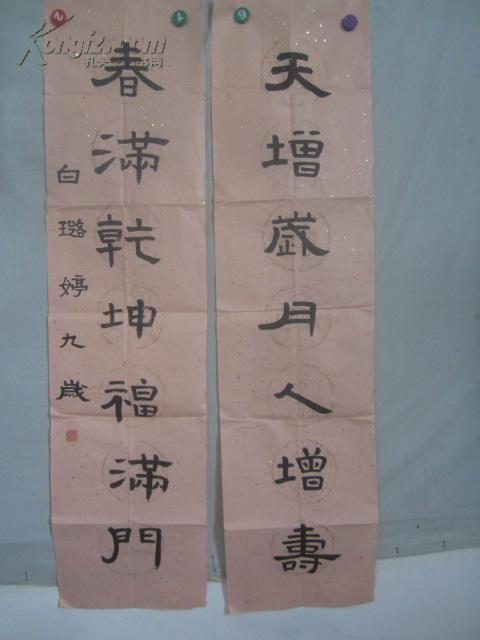 天增歲月人增壽
春滿乾坤福滿門
白璐婷九歲
Kongfz.com
孔夫子旧书网